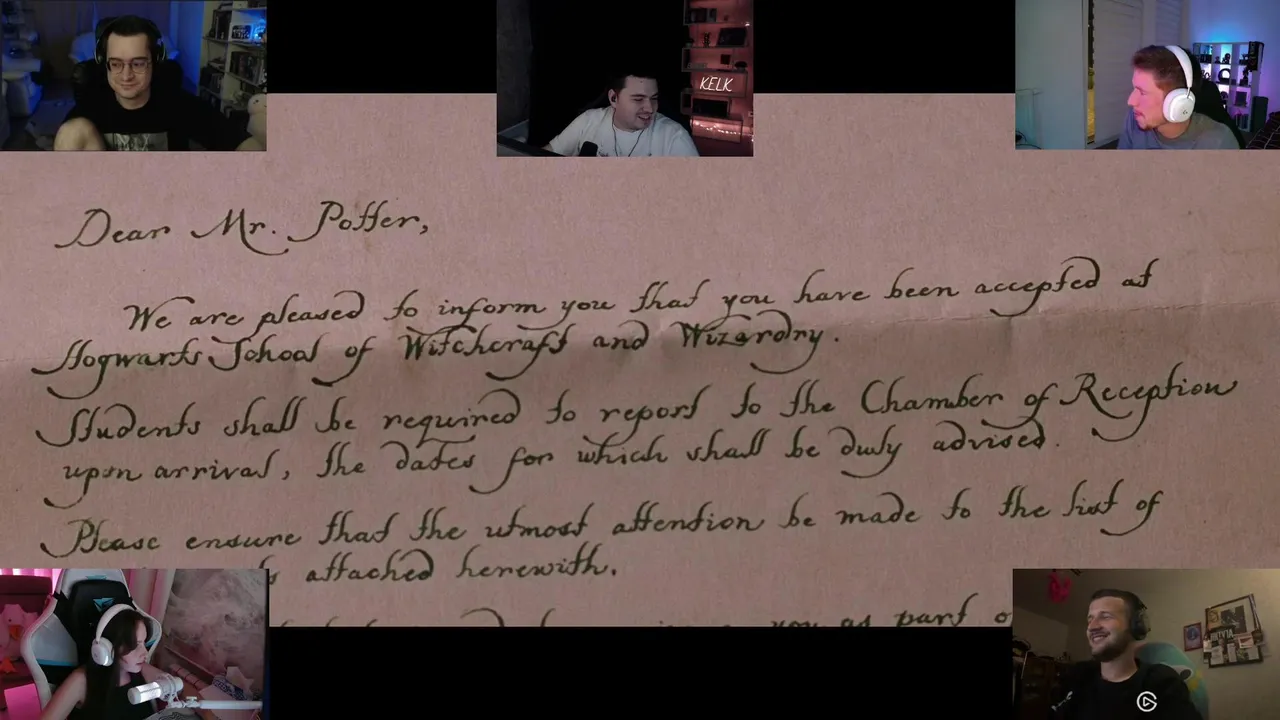 KELK
Dear Mr. Potter,
We are pleased to inform you that you have been accepted at
Hogwarts School of Witchcraft and Wizardry.
Students shall be required to report to the Chamber of Reception
upon arrival, the dates for which shall be duly advised.
Please ensure that the utmost attention be made to the list of
attached herewith.
you as part